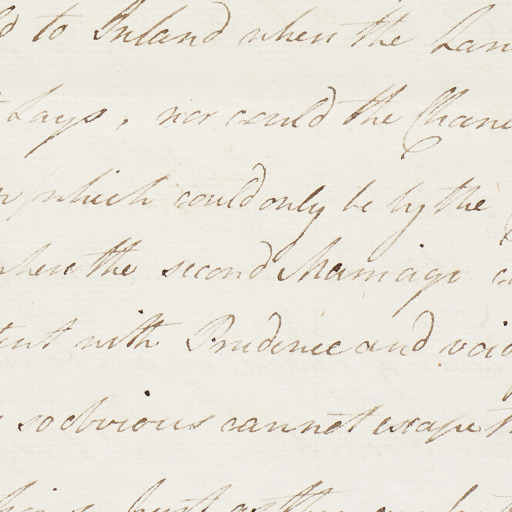 to Ireland when the Lan
Lays, nor could the Chanc
which could only be by the
where the second Marriage
tent with Prudence and void
so obvious cannot escape th